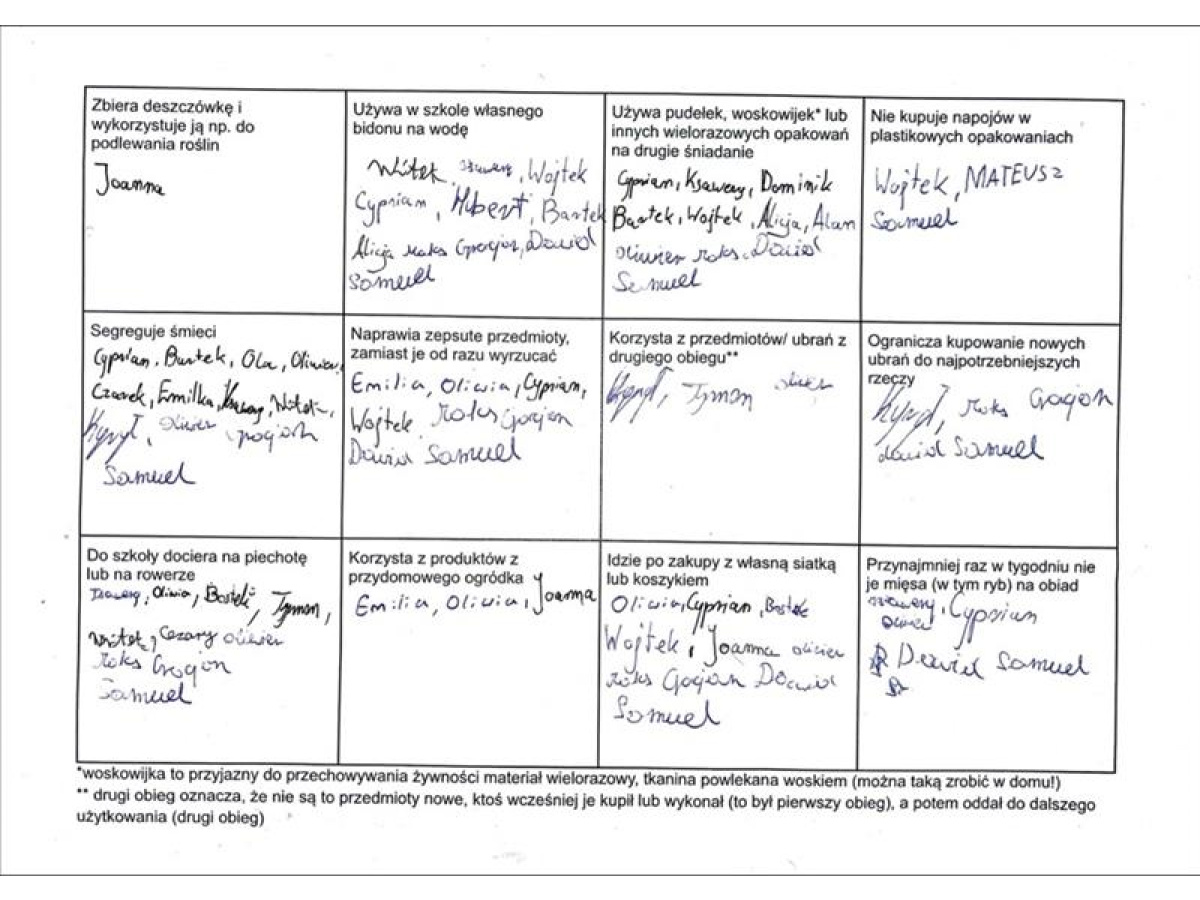 Zbiera deszczówkę i
wykorzystuje ją np. do
podlewania roślin
Joanna
Używa w szkole własnego
bidonu na wodę
Witek, Wojtek
Cyprian, Hubert, Bartek
Alicja roks Gracjan, Dawid
Samuel
Używa pudełek, woskowijek* lub
innych wielorazowych opakowań
na drugie śniadanie
Cyprian, Ksawery, Dominik
Bartek, Wojtek, Alicja, Alan
oliwier roks. Dawid
Samuel
Nie kupuje napojów w
plastikowych opakowaniach
Wojtek, MATEUSZ
Samuel
Segreguje śmieci
Cyprian, Bartek, Ola, Oliwia,
Czarek, Emilka, Ksawery, Witek,
oliwier
Samuel
Naprawia zepsute przedmioty,
zamiast je od razu wyrzucać
Emilia, Oliwia, Cyprian,
Wojtek roks Gracjan
Dawid Samuel
Korzysta z przedmiotów/ ubrań z
drugiego obiegu**
Tymon oliwier
Ogranicza kupowanie nowych
ubrań do najpotrzebniejszych
rzeczy
roks
dawid Samuel
Do szkoły dociera na piechotę
lub na rowerze
Ksawery, Oliwia, Bartek, Tymon,
Witek, Cezary oliwier
roks
Samuel
Korzysta z produktów z
przydomowego ogródka
Emilia, Oliwia, Joanna
Idzie po zakupy z własną siatką
lub koszykiem
Oliwia, Cyprian, Bartek
Wojtek, Joanna oliwier
roks Gracjan Dawid
Samuel
Przynajmniej raz w tygodniu nie
je mięsa (w tym ryb) na obiad
Ksawery, Cyprian
oliwier
Dawid Samuel
*woskowijka to przyjazny do przechowywania żywności materiał wielorazowy, tkanina powlekana woskiem (można taką zrobić w domu!)
** drugi obieg oznacza, że nie są to przedmioty nowe, ktoś wcześniej je kupił lub wykonał (to był pierwszy obieg), a potem oddał do dalszego
użytkowania (drugi obieg)